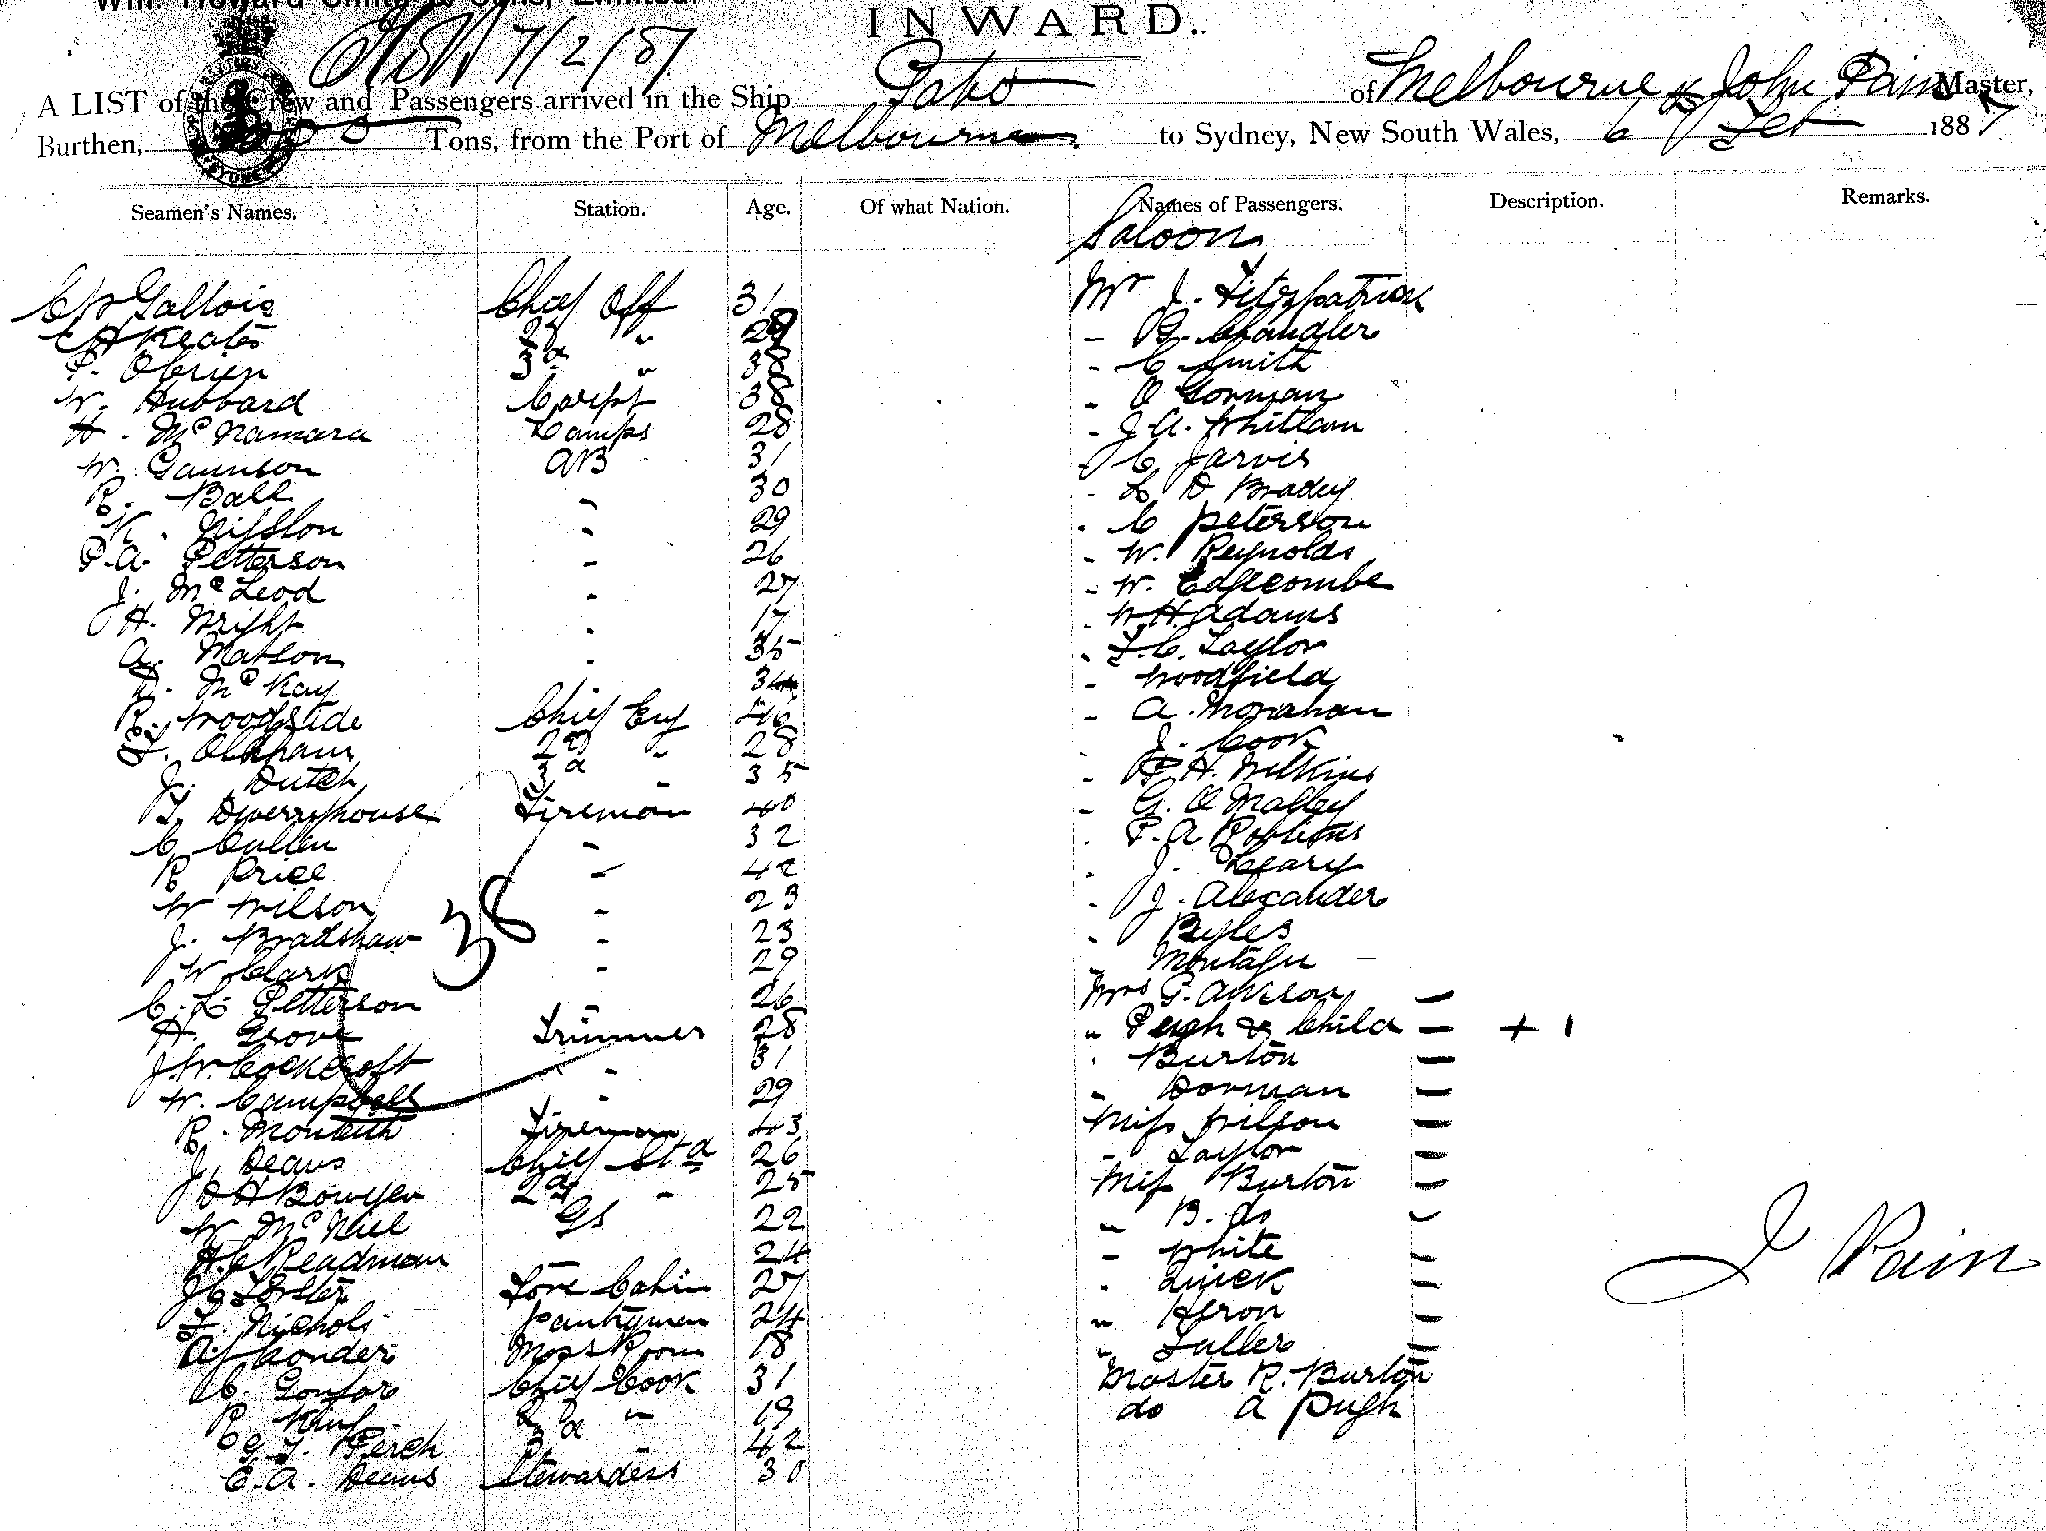 Wm. Howard Smith & Sons, Limited.
INWARD.
7/2/87
A LIST of the Crew and Passengers arrived in the Ship of Melbourne John Pain Master,
Burthen, Tons, from the Port of Melbourne to Sydney, New South Wales, 6 Feb 1887
Seamen's Names. Station. Age. Of what Nation. Names of Passengers. Description. Remarks.
Saloon
Gallois Chief Off 31 Mr J. Fitzpatrick
Keats 2d " 29 - Chandler
P. Obrien 3d " 38 - C Smith
W. Hubbard Carpt 38 " O Gorman
H. McNamara Lamps 28 - J A. Whitlam
W. Gaunson AB 31 C Jarvis
R. Ball - 30 - L D Bradey
K. - 29 - C Peterson
P. A. Petterson - 26 - W. Reynolds
J. McLeod - 27 - W. Edgecombe
H. Wright - 17 - W H Adams
A. Matson - 35 - F. C. Taylor
D. McKay 34 - Woodfield
R. Woodside Chief Eng 46 - A. Monahan
F. Oldham 2d " 28 J. Cook
J. Dutch 3d " 35 - H. Wilkins
T. Dwerryhouse Fireman 40 - G. O Malley
C Cullen - 32 - P. A
R Price - 42 - J. Leary
W Wilson - 23 - J. Alexander
J. Bradshaw - 23 - Byles
W Clark - 29 - Montagu
C. L. Petterson 26 Mrs G.
H. Grove Trimmer 28 " Pugh & Child — + 1
J. W. Cockcroft - 31 - Burton —
W. Campbell - 29 " Dorman —
R. Monteith Fireman 43 Miss Wilson —
J. Deans Chief Std 26 - Taylor —
H Bowyer 2d " 25 Miss Burton —
W McNiel GS 22 " B. do
H. C Readman 24 - White
J C Forster Fore Cabin 27 - Quick
F. Nichols Pantryman 24 " Heron
A. J Conder Mess Room 18 " Fuller
C. Chief Cook 31 Master R. Burton
R King 2d " 19 do A Pugh
Perch - 42
E. A. Deans Stewardess 30
38
J Pain